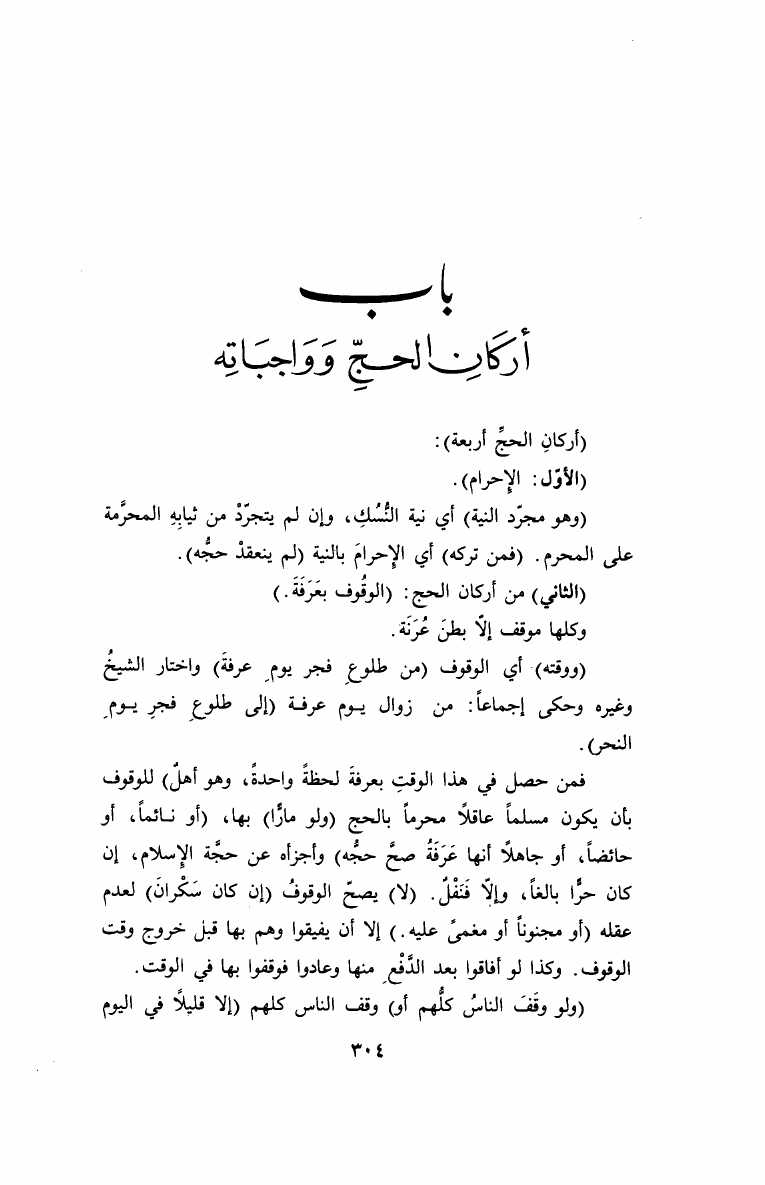 باب
أركَانِ الحجِّ وَوَاجبَاتِه
(أركانِ الحجِّ أربعة):
(الأوّل: الإحرام).
(وهو مجرّد النية) أي نية النُّسُكِ، وإن لم يتجرّدْ من ثيابِهِ المحرَّمة
على المحرم. (فمن تركه) أي الإحرامَ بالنية (لم ينعقدْ حجُّه).
(الثاني) من أركان الحج: (الوقُوف بعَرَفَةَ.)
وكلها موقف إلّا بطنَ عُرَنَة.
(ووقته) أي الوقوف (من طلوعِ فجر يومِ عرفةَ) واختار الشيخُ
وغيره وحكى إجماعاً: من زوال يـوم عرفـة (إلى طلوعِ فجرِ يـومِ
النحر).
فمن حصل في هذا الوقتِ بعرفةَ لحظةً واحدةً، وهو أهلٌ) للوقوف
بأن يكون مسلماً عاقلاً محرماً بالحج (ولو مارًّا) بها، (أو نـائمـاً، أو
حائضاً، أو جاهلًا أنها عَرَفَةُ صحَّ حجُّه) وأجزأه عن حجَّة الإسلام، إن
كان حرًّا بالغاً، وإلّا فَنَفْلٌ. (لا) يصحّ الوقوفُ (إن كان سَكْرانَ) لعدم
عقله (أو مجنوناً أو مغمىً عليه.) إلا أن يفيقوا وهم بها قبل خروج وقت
الوقوف. وكذا لو أفاقوا بعد الدَّفْعِ منها وعادوا فوقفوا بها في الوقت.
(ولو وقَفَ الناسُ كلُّهم أو) وقف الناس كلهم (إلا قليلًا في اليوم
٣٠٤